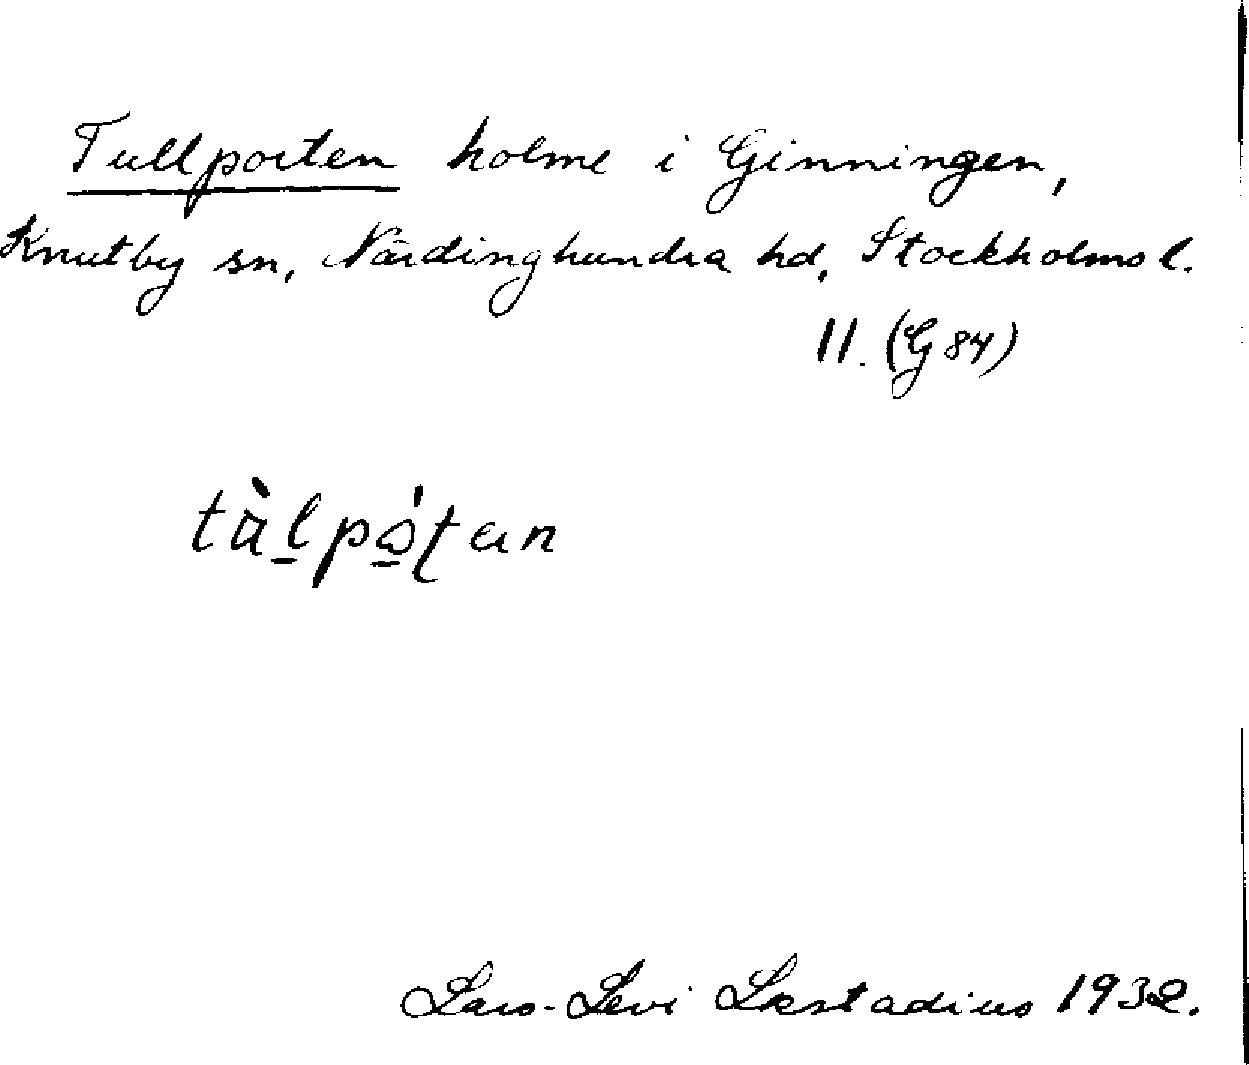 Tullporten holme i Ginningen,
Knutby sn, Närdinghundra hd, Stockholms l.
11. (G 84)
tàlpó̲ʈan
Lars-Levi Læstadius 1932.